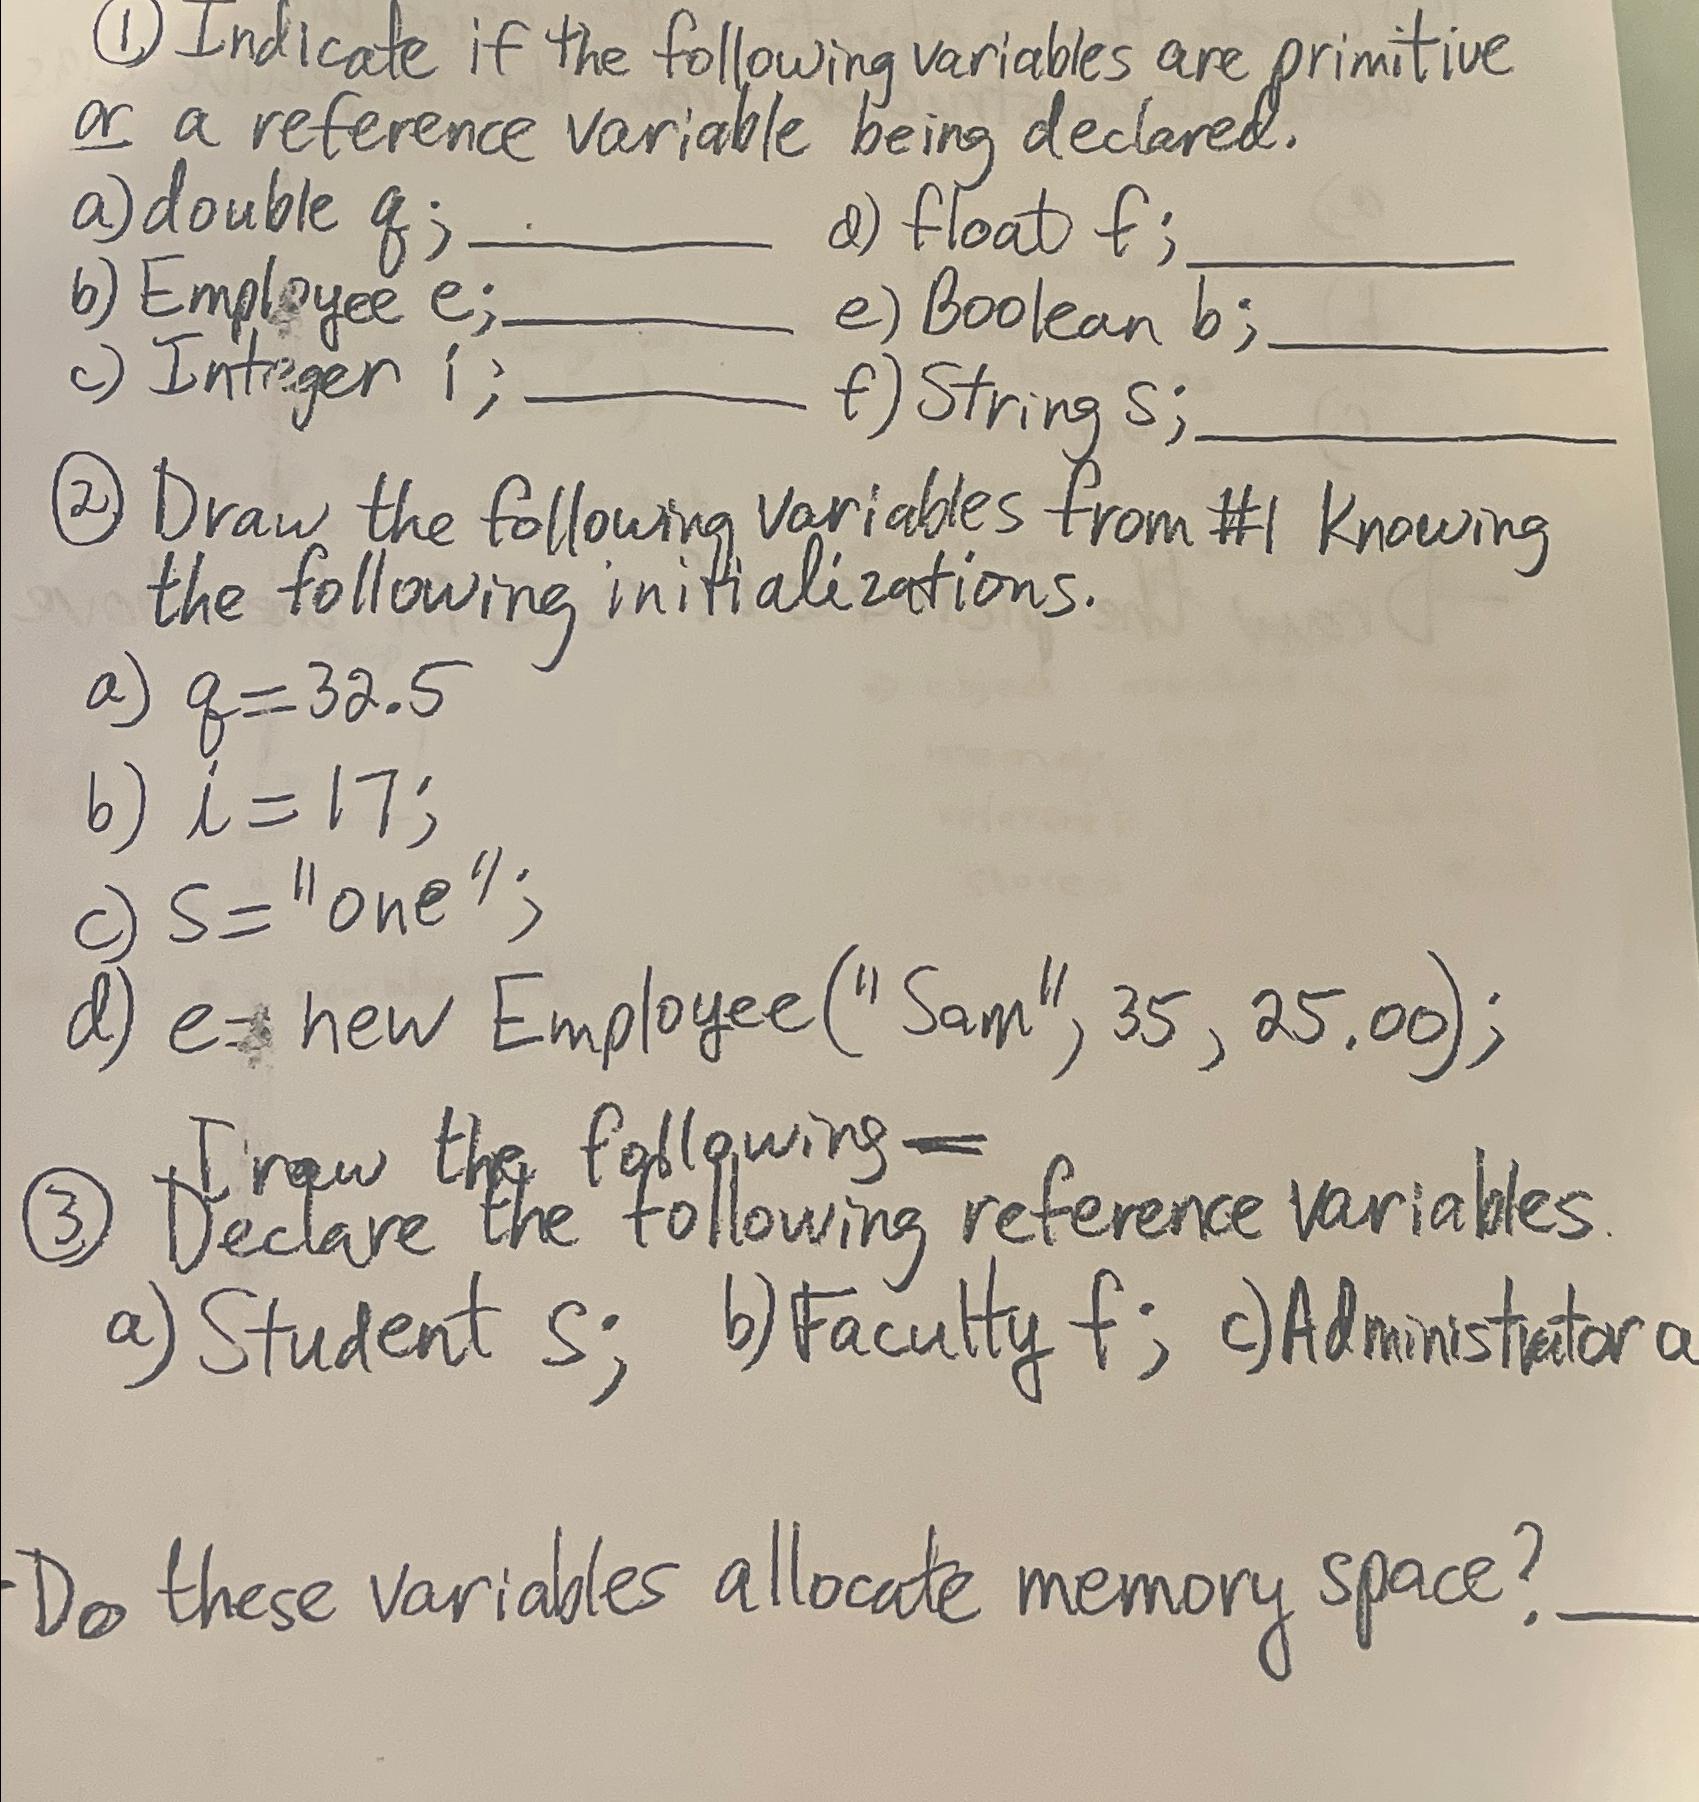 ① Indicate if the following variables are primitive
or a reference variable being declared.
a) double q; ________ d) float f; ________
b) Employee e; ________ e) Boolean b; ________
c) Integer i; ________ f) String s; ________
② Draw the following variables from #1 Knowing
the following initializations.
a) q=32.5
b) i=17;
c) S="one";
d) e= new Employee("Sam", 35, 25.00);
Draw the following
③ Declare the following reference variables.
a) Student s; b) Faculty f; c) Administrator a
-Do these variables allocate memory space? ____